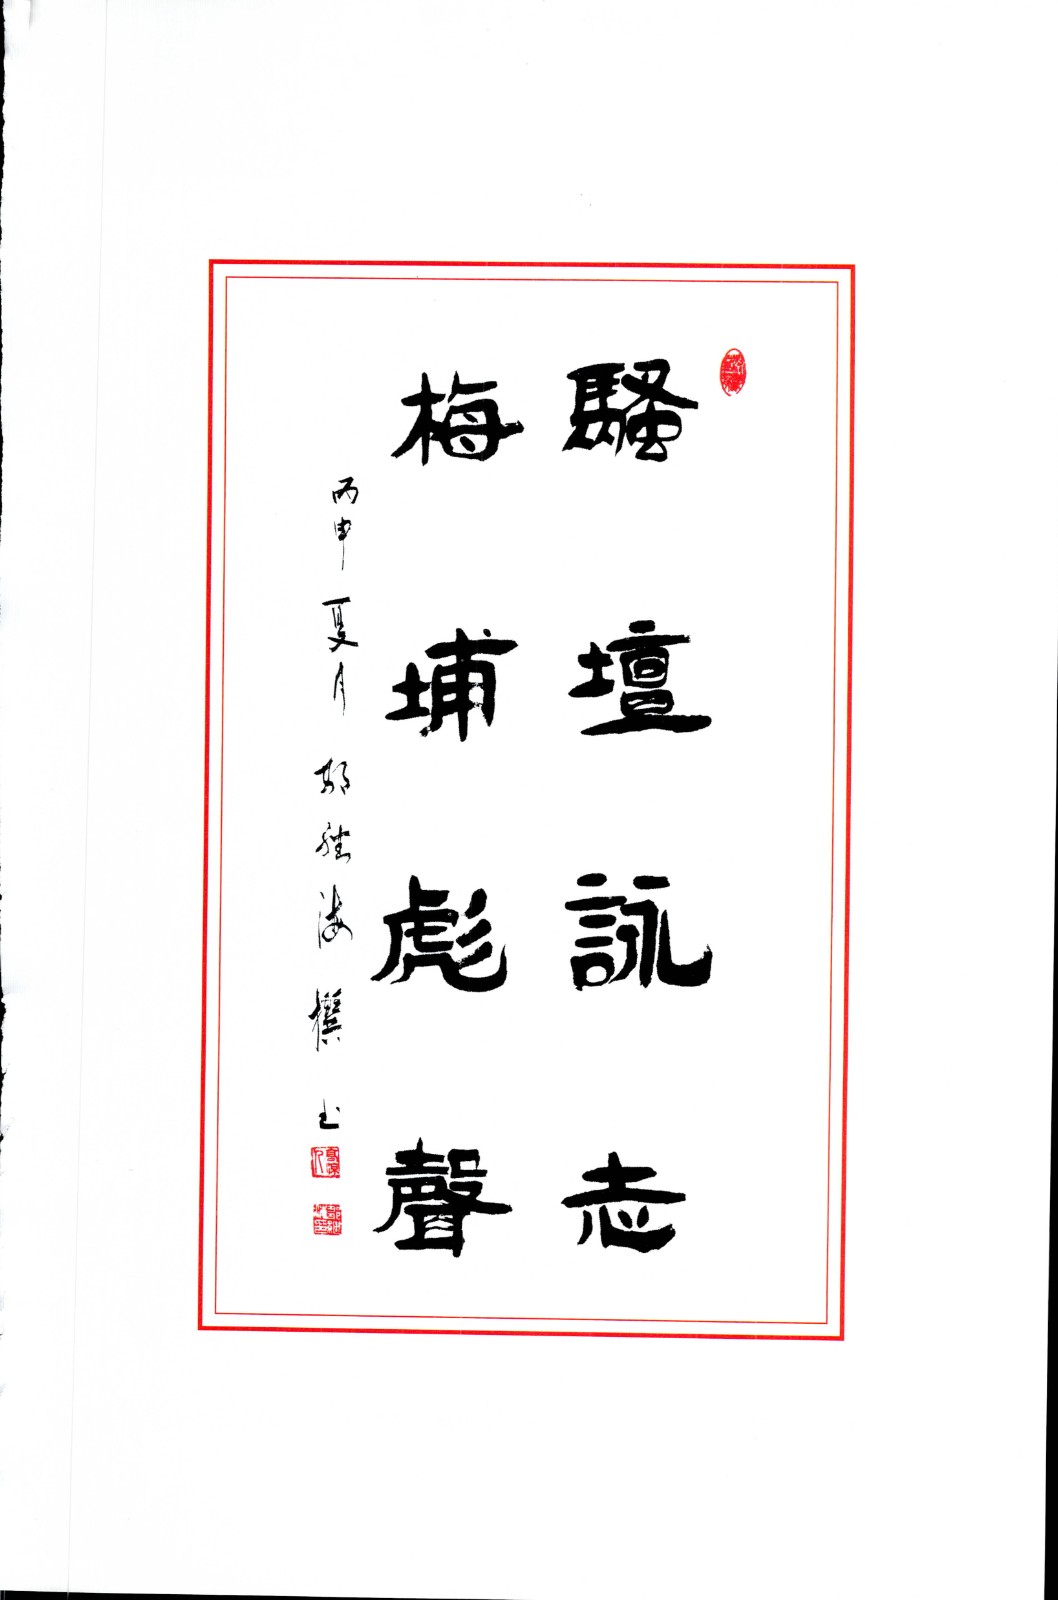 騷壇詠志
梅埔彪聲
丙申夏月 海撰书